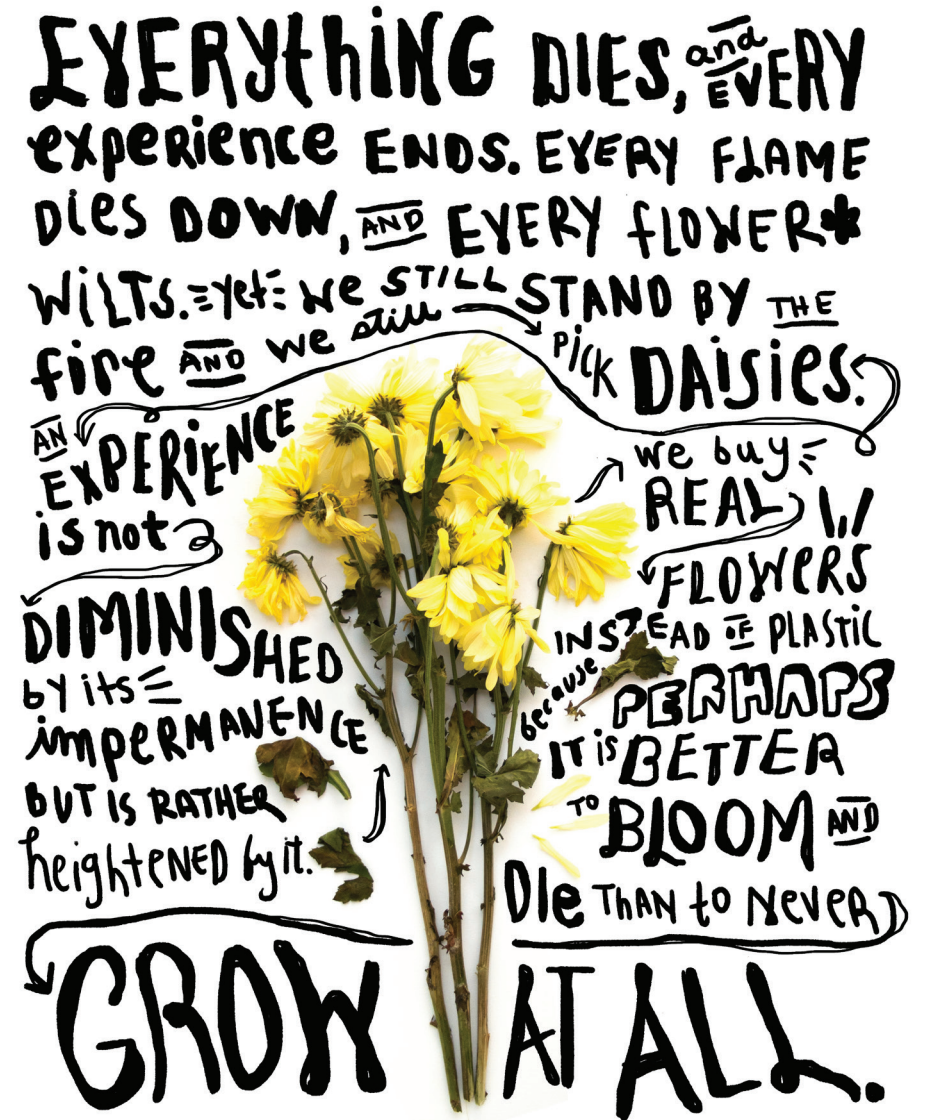 EVERYthiNG DIES, and EVERY
experience ENDS. EVERY FLAME
Dies DOWN, AND EVERY flOWER*
WiLTS. yet we STILL STAND BY THE
fire AND we still pick DAisies.
AN
EXPERiENCE
is not
DIMINISHED
by its
impERMANENCE
BUT IS RATHER
heightENED by it.
we buy
REAL
FLOWERS
INSTEAD OF PLASTIC
because PERHAPS
IT is BETTER
TO BLOOM AND
Die THAN to NeveR
GROW AT ALL.